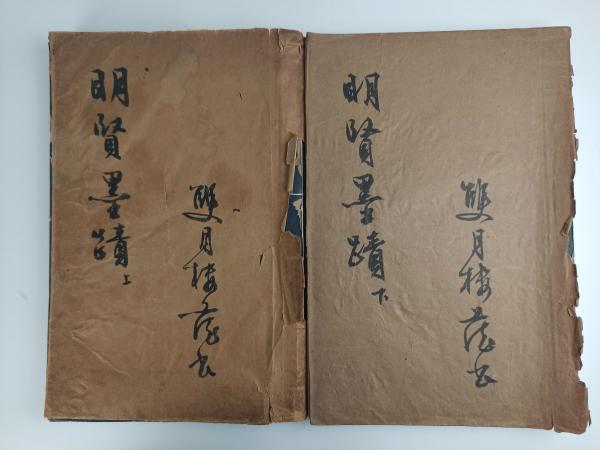 明賢墨蹟上
雙月樓藏書
明賢墨蹟下
雙月樓藏書